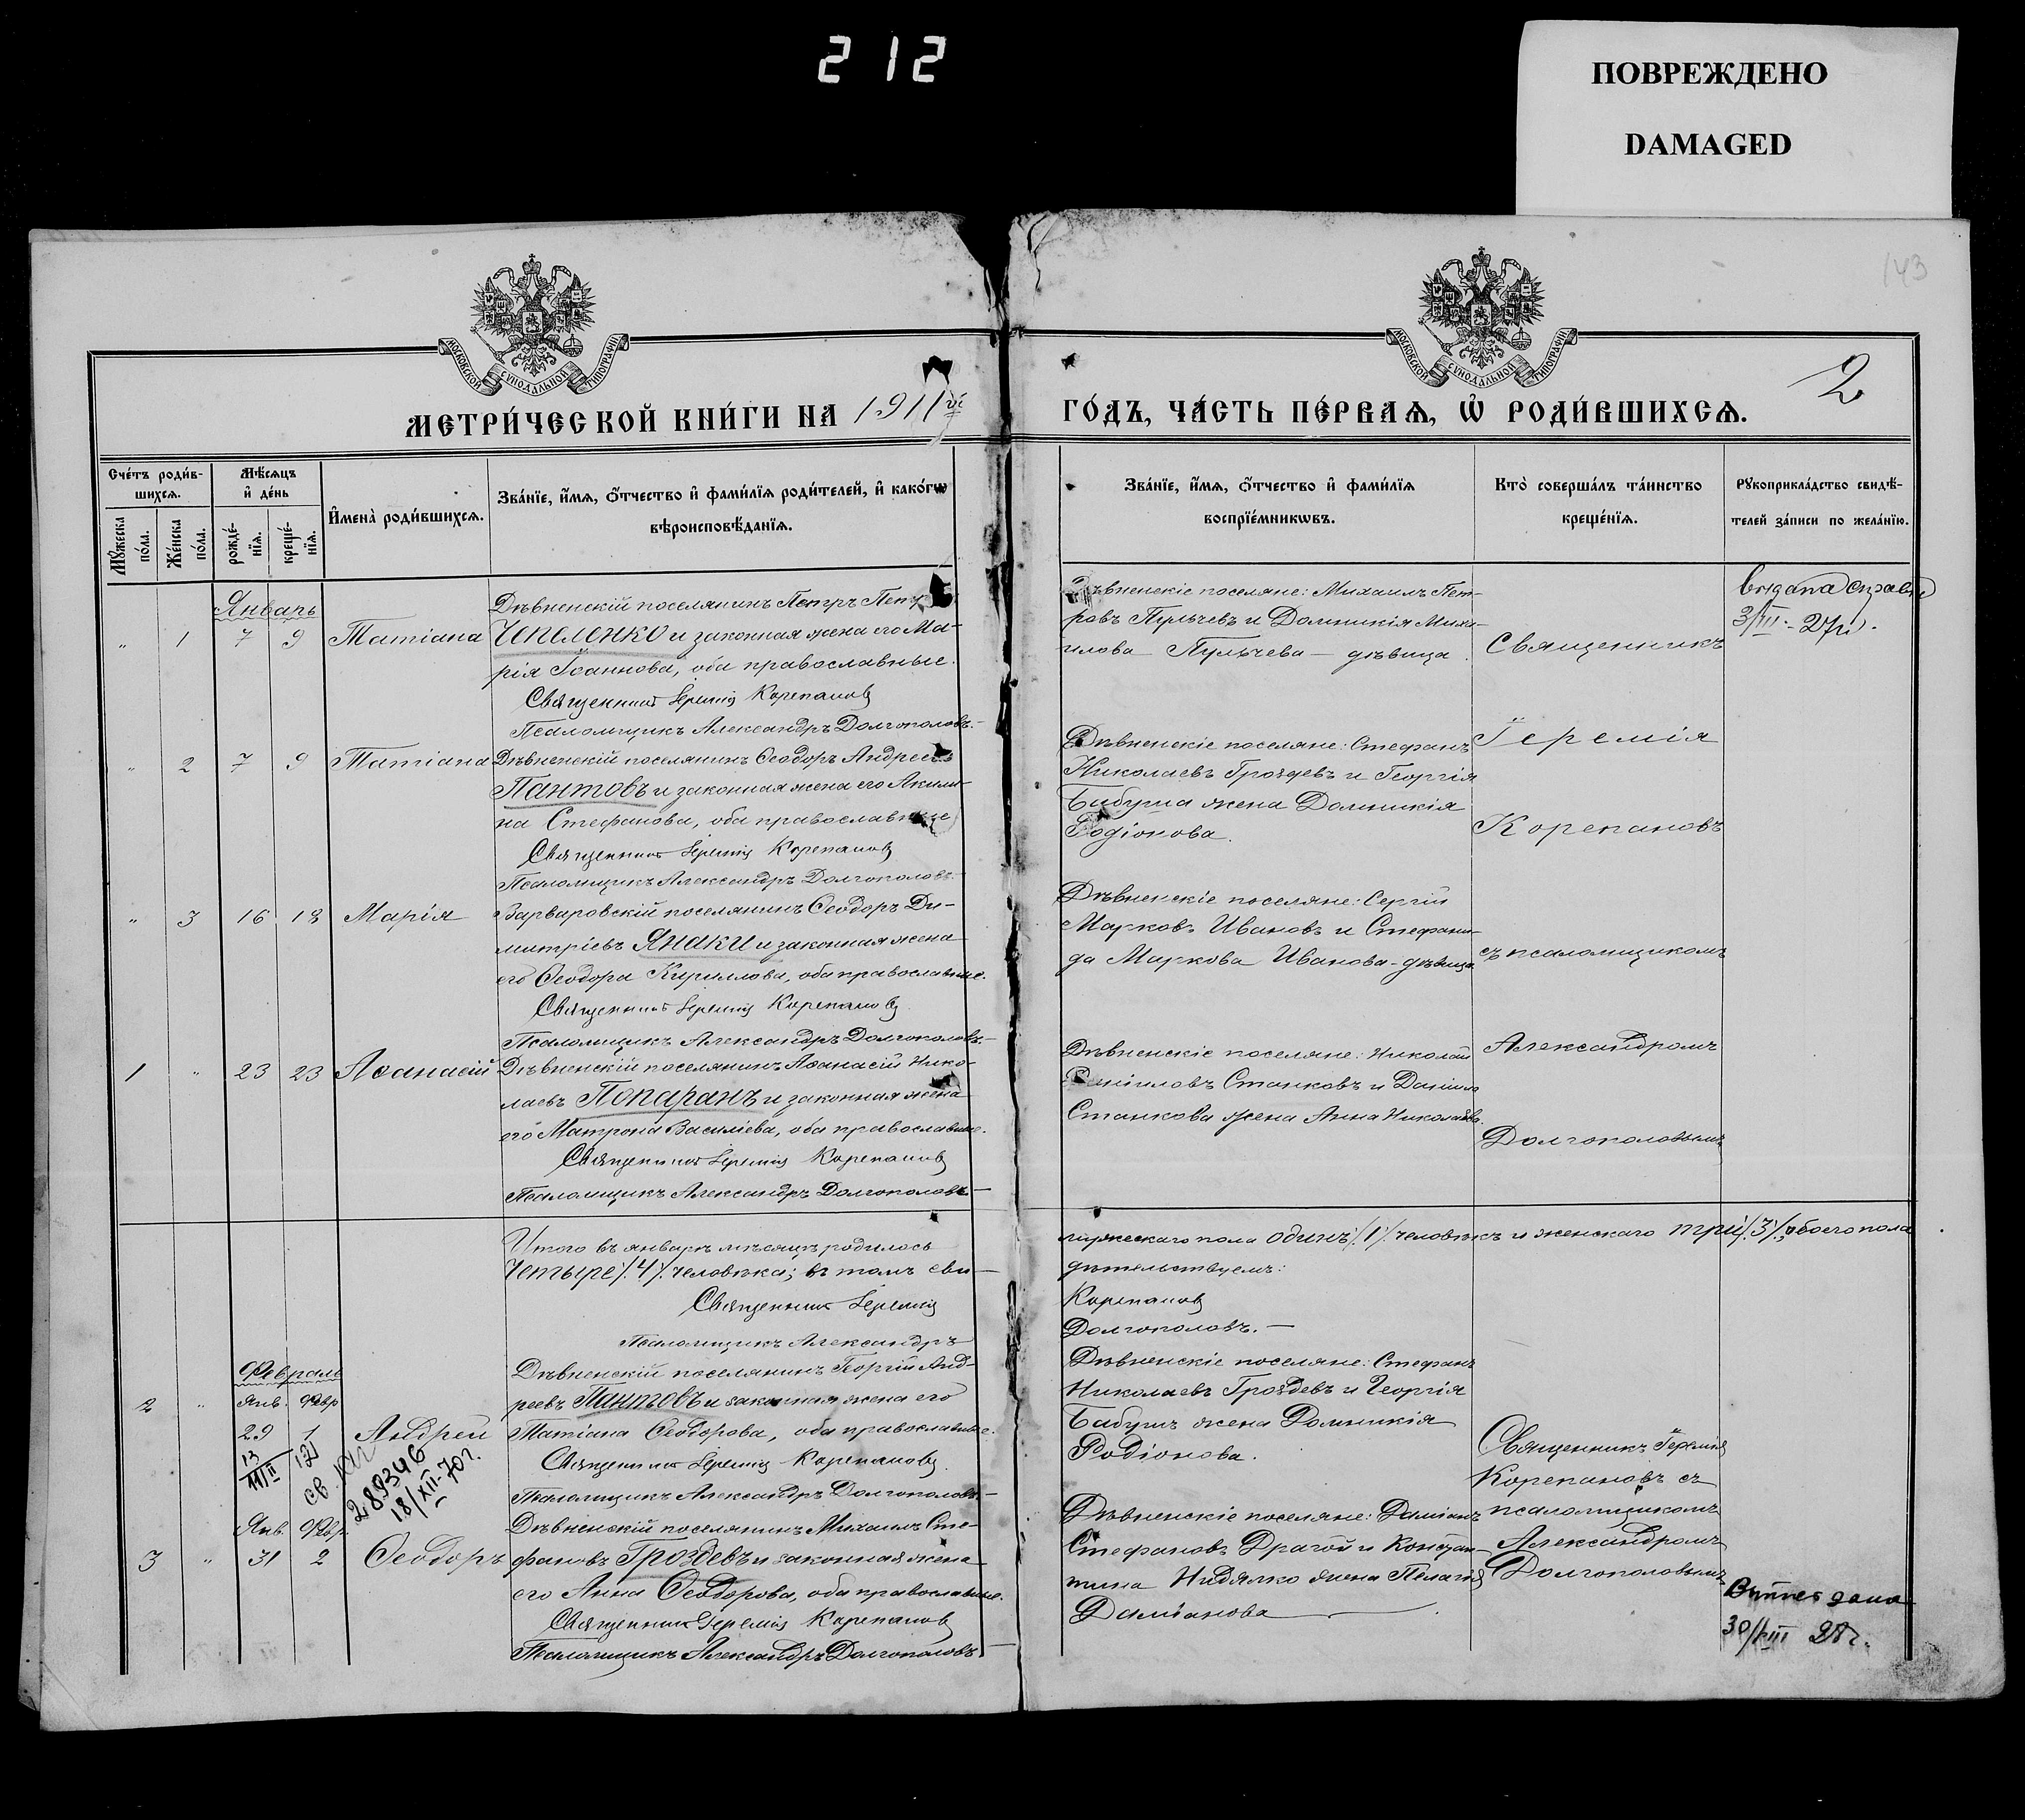 212
ПОВРЕЖДЕНО
DAMAGED
143
МОСКОВСКОЙ СѴНОДАЛЬНОЙ ТИПОГРАФІИ
МОСКОВСКОЙ СѴНОДАЛЬНОЙ ТИПОГРАФІИ
2
МЕТРИ́ЧЕСКОЙ КНИ́ГИ НА 1911й
ГО́ДЪ, ЧА́СТЬ ПЕ́РВАѦ, Ѡ҆ РОДИ́ВШИХСѦ.
Сче́тъ роди́в-
шихсѧ.
Мѣ́сѧцъ
и҆ де́нь
Мꙋ́жеска по́ла.
Же́нска по́ла.
рожде́-
нїѧ.
креще́-
нїѧ.
И҆мена̀ роди́вшихсѧ.
Зва́нїе, и҆́мѧ, ѻ҆́тчество и҆ фами́лїѧ роди́телей, и҆ како́гѡ
вѣроисповѣ́данїѧ.
Зва́нїе, и҆́мѧ, ѻ҆́тчество и҆ фами́лїѧ
воспрїе́мникѡвъ.
Кто̀ соверша́лъ та́инство
креще́нїѧ.
Рꙋкоприкла́дство свидѣ́-
телей за́писи по жела́нїю.
Январь
" 1 7 9 Татіана
Дѣвненскій поселянинъ Петръ Петр
Чепеленко и законная жена его Ма-
рія Іоаннова, оба православные.
Священникъ Іеремія Корепановъ
Псаломщикъ Александръ Долгополовъ.-
Дѣвненскіе поселяне: Михаилъ Пет-
ровъ Пульчевъ и Домникія Миха-
илова Пульчева - дѣвица.
Священникъ
выдана справка
" 2 7 9 Татіана
Дѣвненскій поселянинъ Ѳеодоръ Андреевъ
Пантовъ и законная жена его Акили-
на Стефанова, оба православные
Священникъ Іеремія Корепановъ
Псаломщикъ Александръ Долгополовъ.-
Дѣвненскіе поселяне: Стефанъ
Николаевъ Гроздевъ и Георгія
Бабуша жена Домникія
Родіонова.
Іеремія
Корепановъ
" 3 16 18 Марія
Варваровскій поселянинъ Ѳеодоръ Ди-
митріевъ Янаки и законная жена
его Ѳеодора Кириллова, оба православные.
Священникъ Іеремія Корепановъ
Псаломщикъ Александръ Долгополовъ.-
Дѣвненскіе поселяне: Сергій
Марковъ Ивановъ и Стефани-
да Маркова Иванова - дѣвица
съ псаломщикомъ
1 " 23 23 Аѳанасій
Дѣвненскій поселянинъ Аѳанасій Нико-
лаевъ Попаранъ и законная жена
его Матрона Василіева, оба православные.
Священникъ Іеремія Корепановъ
Псаломщикъ Александръ Долгополовъ.-
Дѣвненскіе поселяне: Николай
Даніиловъ Станковъ и Даніила
Станкова жена Анна Николаева.
Александромъ
Долгополовымъ
Итого въ январѣ мѣсяцѣ родилось
мужескаго пола одинъ /.1/. человѣкъ и женскаго три /.3/., обоего пола
четыре /.4/. человѣка; въ томъ сви-
дѣтельствуемъ:
Священникъ Іеремія
Корепановъ
Псаломщикъ Александръ
Долгополовъ.-
Февраль
Янв. Февр
2 " 29 1 Андрей
Дѣвненскій поселянинъ Георгій Анд-
реевъ Пантовъ и законная жена его
Татіана Ѳеодорова, оба православные.
Священникъ Іеремія Корепановъ.
Псаломщикъ Александръ Долгополовъ.-
13
11/II
289346
18/XII-70г.
Дѣвненскіе поселяне: Стефанъ
Николаевъ Гроздевъ и Георгія
Бабуша жена Домникія
Родіонова.
Священникъ Іеремія
Корепановъ съ
псаломщикомъ
Александромъ
Долгополовымъ
Янв. Февр.
3 " 31 2 Ѳеодоръ
Дѣвненскій поселянинъ Михаилъ Сте-
фановъ Гроздевъ и законная жена
его Анна Ѳеодорова, оба православные.
Священникъ Іеремія Корепановъ
Псаломщикъ Александръ Долгополовъ.-
Дѣвненскіе поселяне: Даміанъ
Стефановъ Драгой и Констан-
тина Недялко жена Пелагія
Даміанова
дана
28г.